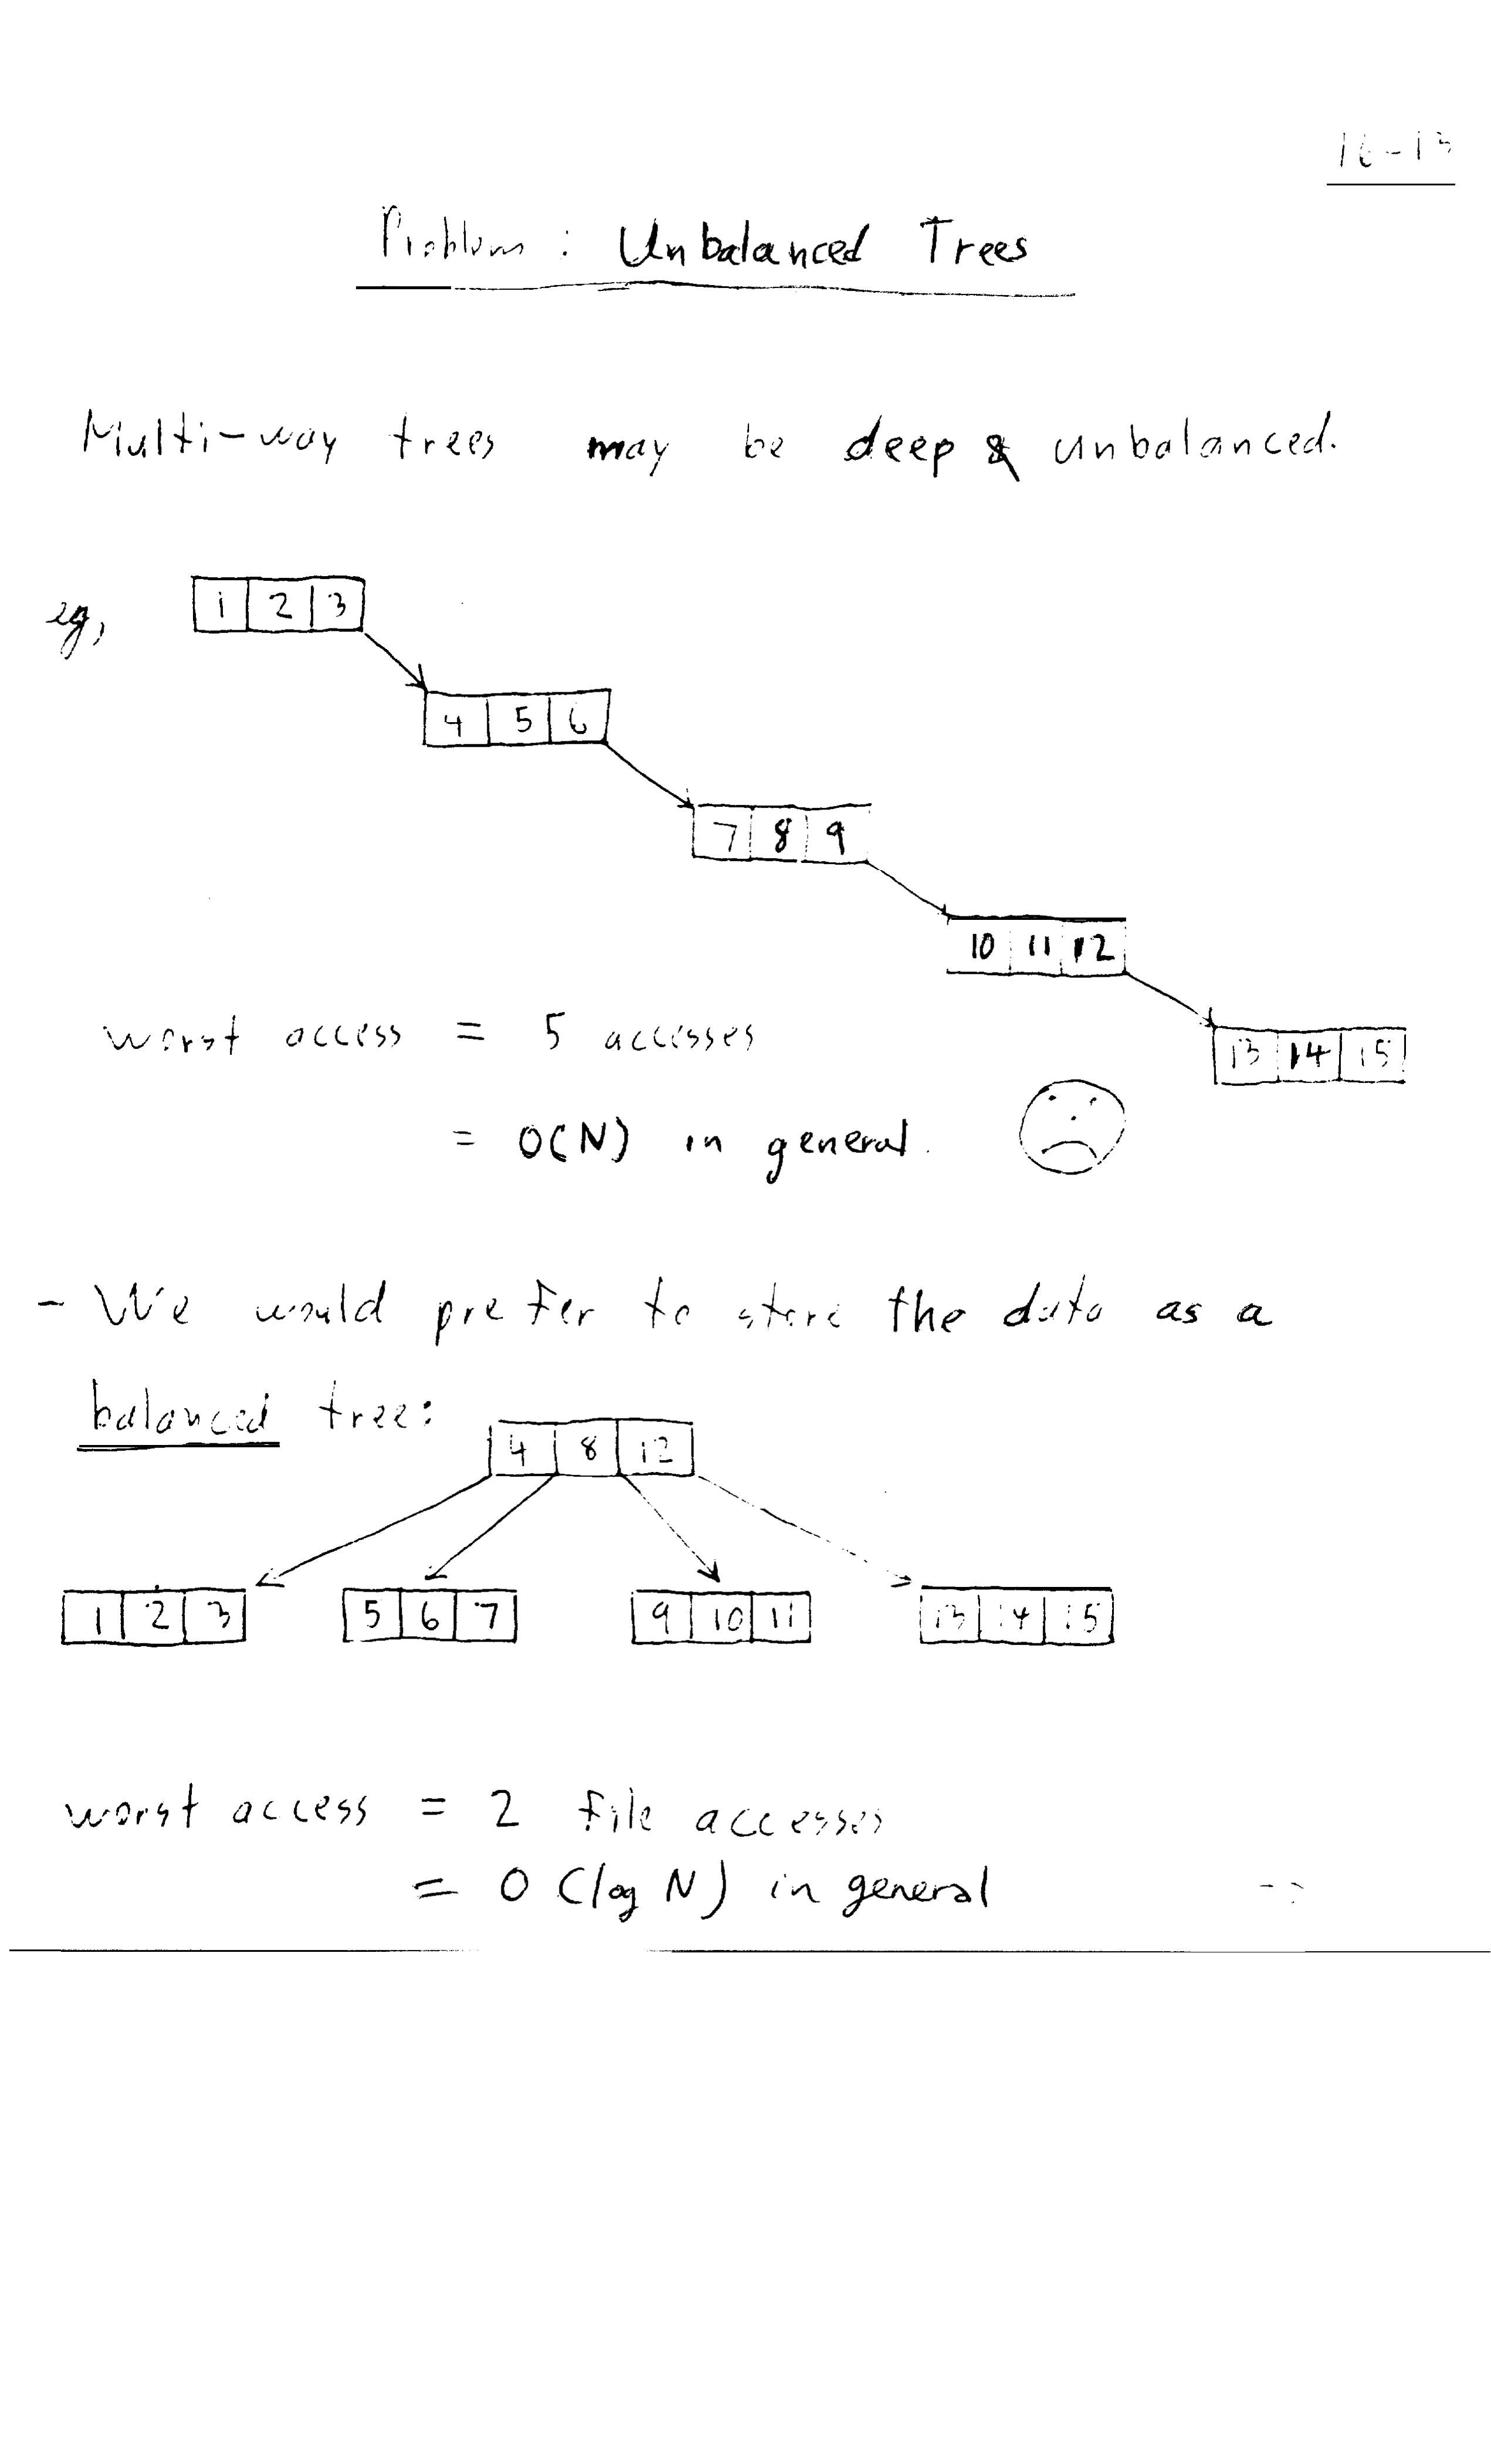 16-13
Problem: Unbalanced Trees
Multi-way trees may be deep & unbalanced.
eg,
1 2 3
4 5 6
7 8 9
10 11 12
13 14 15
worst access = 5 accesses
= O(N) in general.
- We would prefer to store the data as a
balanced tree:
4 8 12
1 2 3
5 6 7
9 10 11
13 14 15
worst access = 2 file accesses
= O(log N) in general